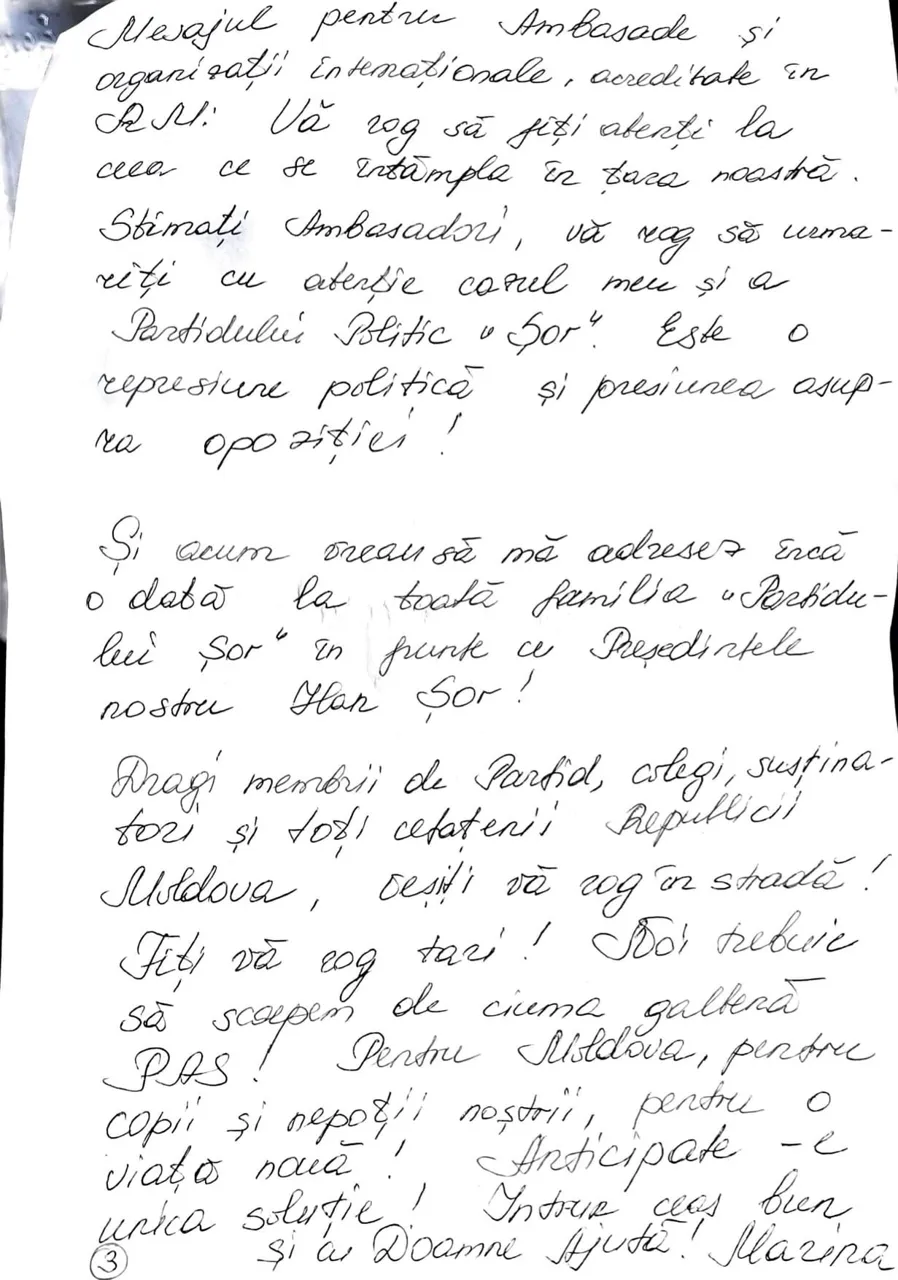 Mesajul pentru Ambasade și
organizații internaționale, acreditate în
RM: Vă rog să fiți atenți la
ceea ce se întâmpla în țara noastră.
Stimați Ambasadori, vă rog să urma-
riți cu atenție cazul meu și a
Partidului Politic "Șor". Este o
represiune politică și presiunea asup-
ra opoziției!
Și acum vreau să mă adresez încă
o dată la toată familia "Partidu-
lui Șor" în frunte cu Președintele
nostru Ilan Șor!
Dragi membrii de Partid, colegi, susțina-
tori și toți cetațenii Republicii
Moldova, ieșiți vă rog în stradă!
Fiți vă rog tari! Noi trebuie
să scapem de ciuma galbenă
PAS! Pentru Moldova, pentru
copii și nepoții noștrii, pentru o
viață nouă! Anticipate - e
unica soluție! Intrun ceas bun
și cu Doamne Ajută! Marina
3